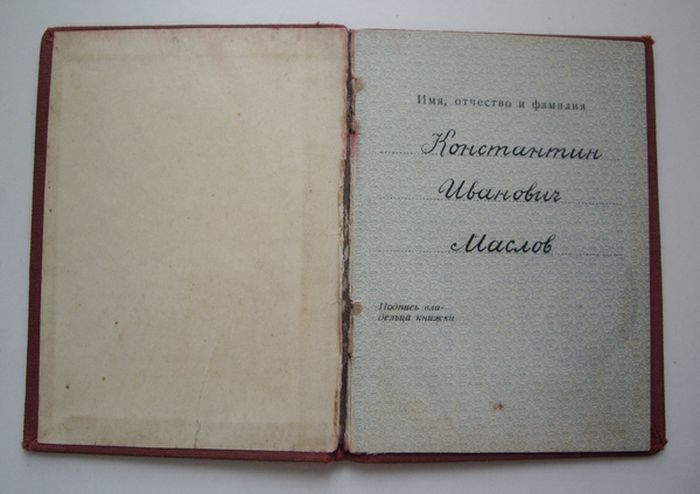 Имя, отчество и фамилия
Константин
Иванович
Маслов
Подпись вла-
дельца книжки